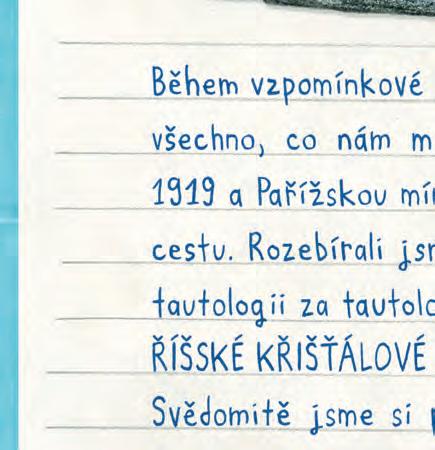 Během vzpomínkové
všechno, co nám m
1919 a Pařížskou mí
cestu. Rozebírali js
tautologii za tautolo
ŘÍŠSKÉ KŘIŠŤÁLOVÉ
Svědomitě jsme si p